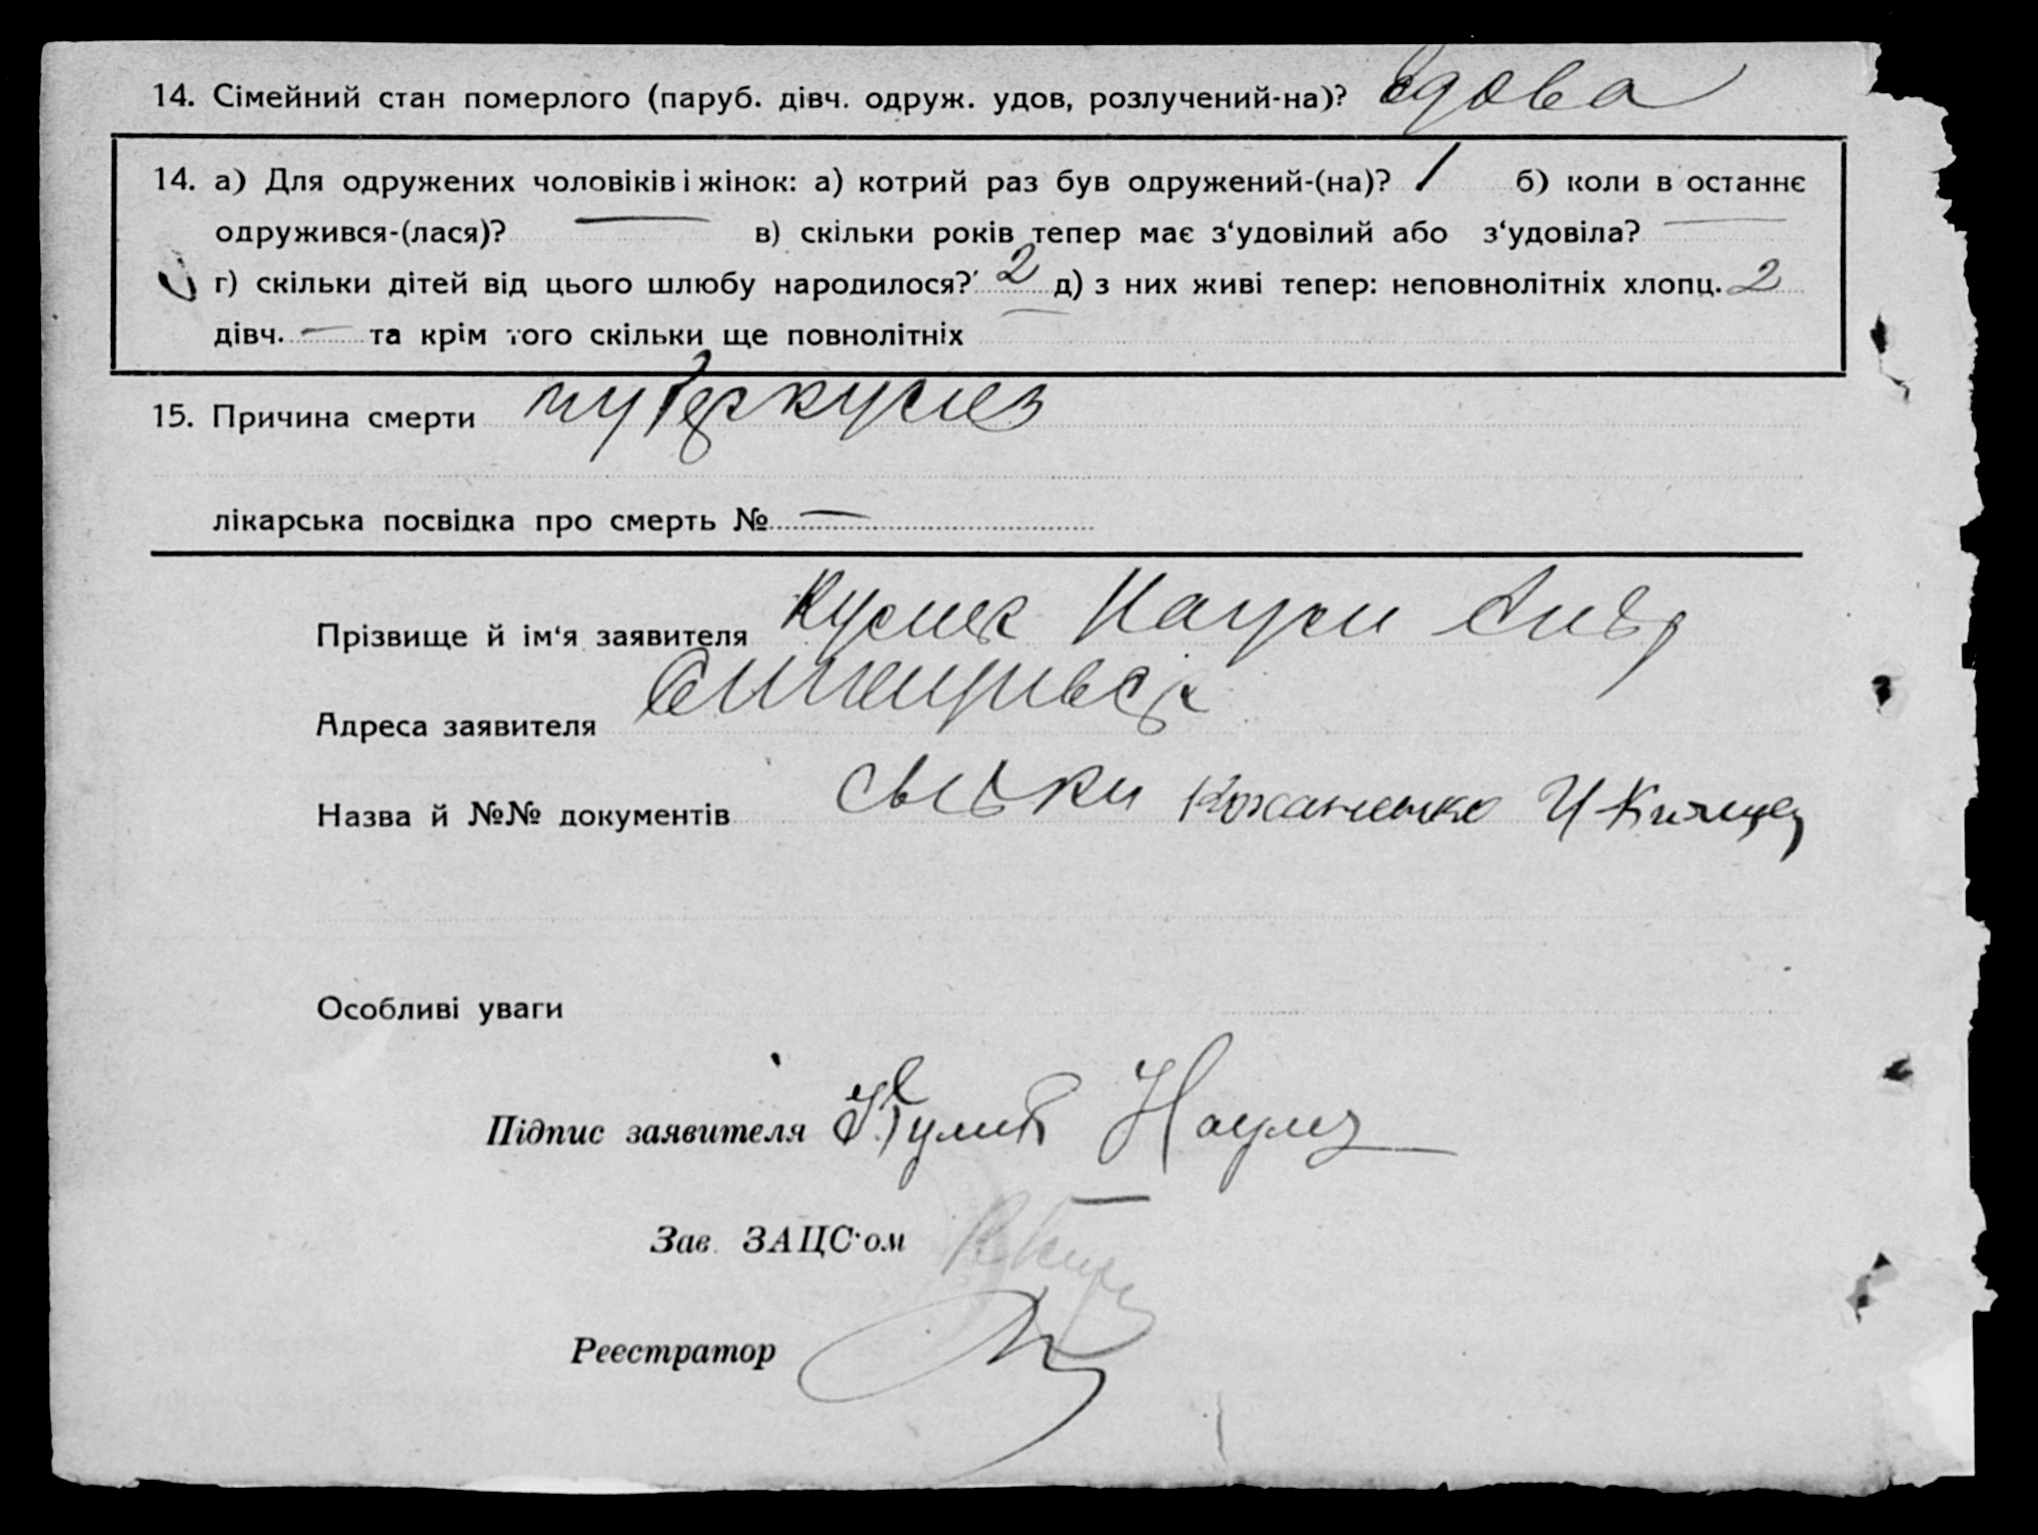 14. Сімейний стан померлого (паруб. дівч. одруж. удов, розлучений-на)? вдова
14. а) Для одружених чоловіків і жінок: а) котрий раз був одружений-(на)? 1 б) коли в останнє
одружився-(лася)? — в) скільки років тепер має з‘удовілий або з‘удовіла? —
г) скільки дітей від цього шлюбу народилося? 2 д) з них живі тепер: неповнолітніх хлопц. 2
дівч. — та крім того скільки ще повнолітніх —
15. Причина смерти туберкульоз
лікарська посвідка про смерть № —
Прізвище й ім‘я заявителя Наум
Адреса заявителя
Назва й №№ документів
Особливі уваги
Підпис заявителя Наум
Зав. ЗАЦС‘ом
Реєстратор